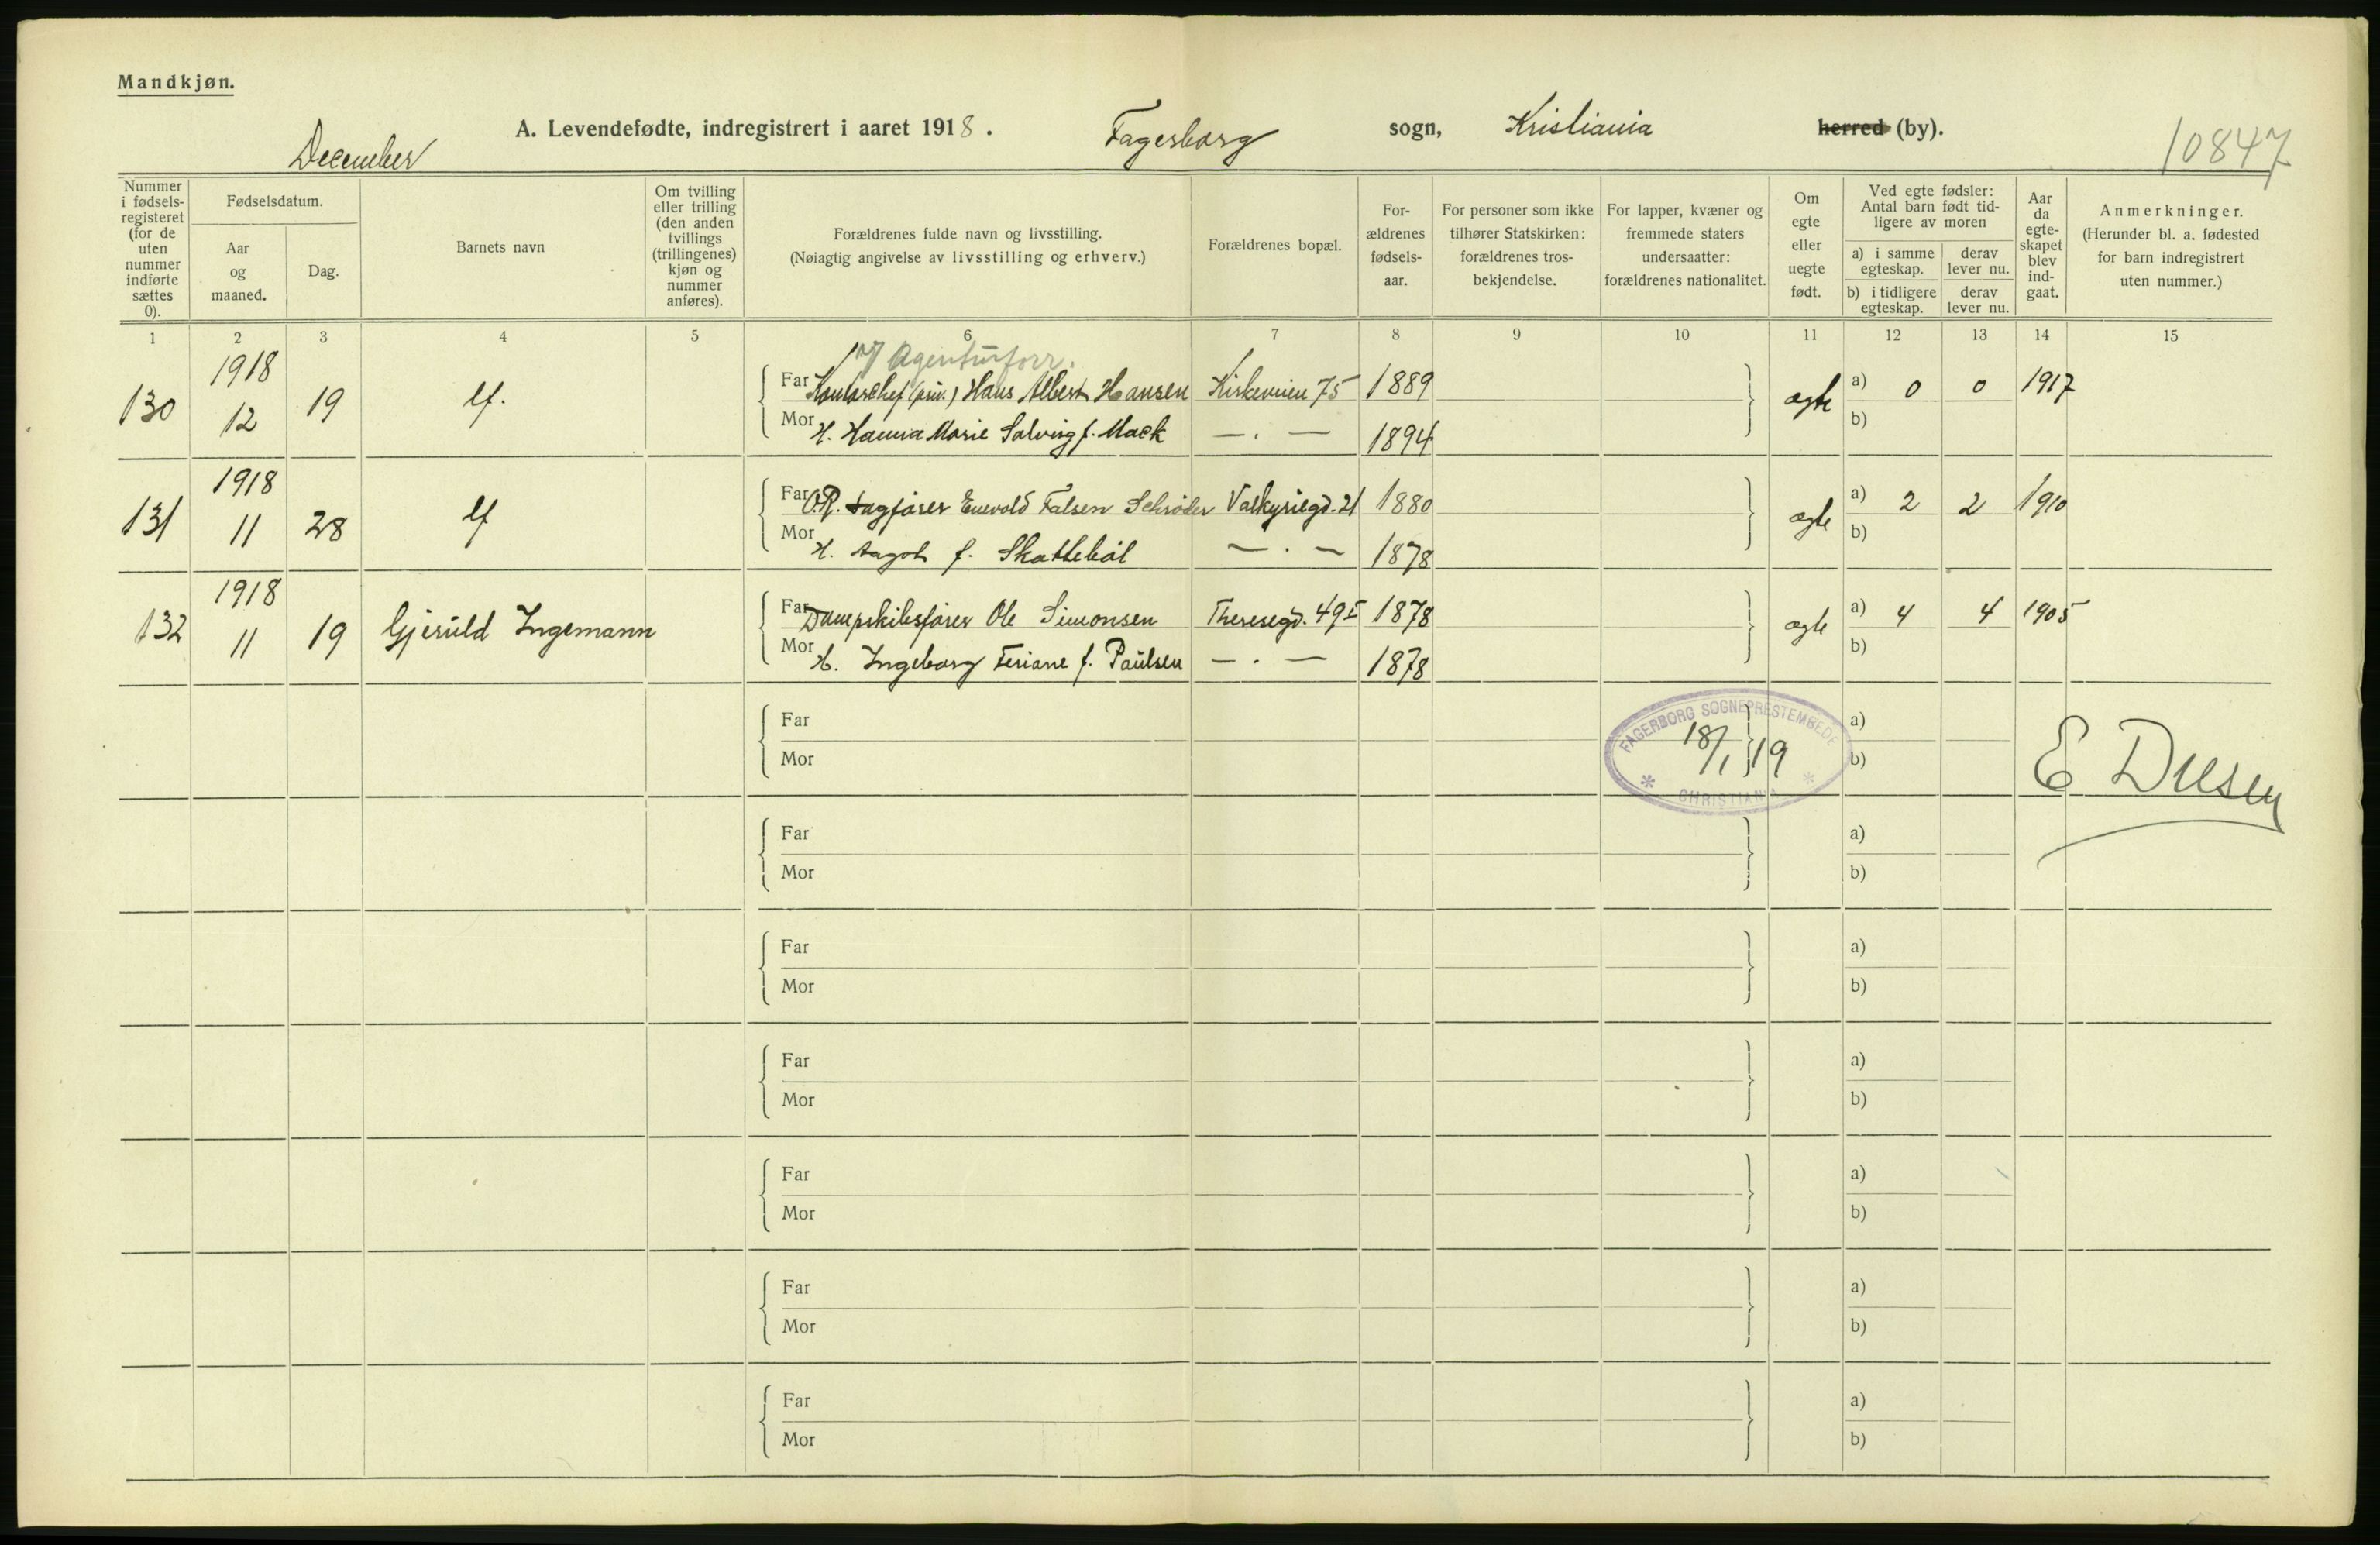 Mandkjøn.
A. Levendefødte, indregistrert i aaret 1918. Fagerborg sogn, Kristiania herred (by).
December
10847
Nummer i fødsels-registeret (for de uten nummer indførte sættes 0).
Fødselsdatum.
Aar og maaned.
Dag.
Barnets navn
Om tvilling eller trilling (den anden tvillings (trillingenes) kjøn og nummer anføres).
Forældrenes fulde navn og livsstilling.
(Nøiagtig angivelse av livsstilling og erhverv.)
Forældrenes bopæl.
For-ældrenes fødsels-aar.
For personer som ikke tilhører Statskirken: forældrenes tros-bekjendelse.
For lapper, kvæner og fremmede staters undersaatter: forældrenes nationalitet.
Om egte eller uegte født.
Ved egte fødsler: Antal barn født tid-ligere av moren
a) i samme egteskap.
derav lever nu.
b) i tidligere egteskap.
derav lever nu.
Aar da egte-skapet blev ind-gaat.
Anmerkninger.
(Herunder bl. a. fødested for barn indregistrert uten nummer.)
1 2 3 4 5 6 7 8 9 10 11 12 13 14 15
Agenturforr.
130 1918 12 19 lf. Far Kontorchef (priv.) Hans Albert Hansen Kirkeveien 75 1889 ægte a) 0 0 1917
Mor H. Hanna Marie Solveig f. Mack — . — 1894 b)
131 1918 11 28 lf Far O.R. sagfører Enevold Falsen Schrøder Valkyriegd. 21 1880 ægte a) 2 2 1910
Mor H. Aagot f. Skattebøl — . — 1878 b)
132 1918 11 19 Gjeruld Ingemann Far Dampskibsfører Ole Simonsen Theresegd. 49 I 1878 ægte a) 4 4 1905
Mor H. Ingeborg f. Paulsen — . — 1878 b)
FAGERBORG SOGNEPRESTEMBEDE
18/1 19
CHRISTIANIA
Far a)
Mor b)
Far a)
Mor b)
Far a)
Mor b)
Far a)
Mor b)
Far a)
Mor b)
Far a)
Mor b)
Far a)
Mor b)